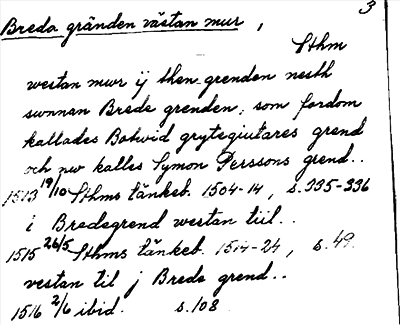 3
Breda gränden västan mur,
Sthm
westan mwr ij then grenden nesth
swnnan Brede grenden, som fordom
kallades Botwid grytegiutares grend
och nw kalles Symon Perssons grend..
1513 19/10 Sthms tänkeb. 1504-14, s.335-336
i Bredegrend westan tiil..
1515 26/5 Sthms tänkeb. 1514-24, s.49.
vestan til j Breda grend..
1516 2/6 ibid. s.108